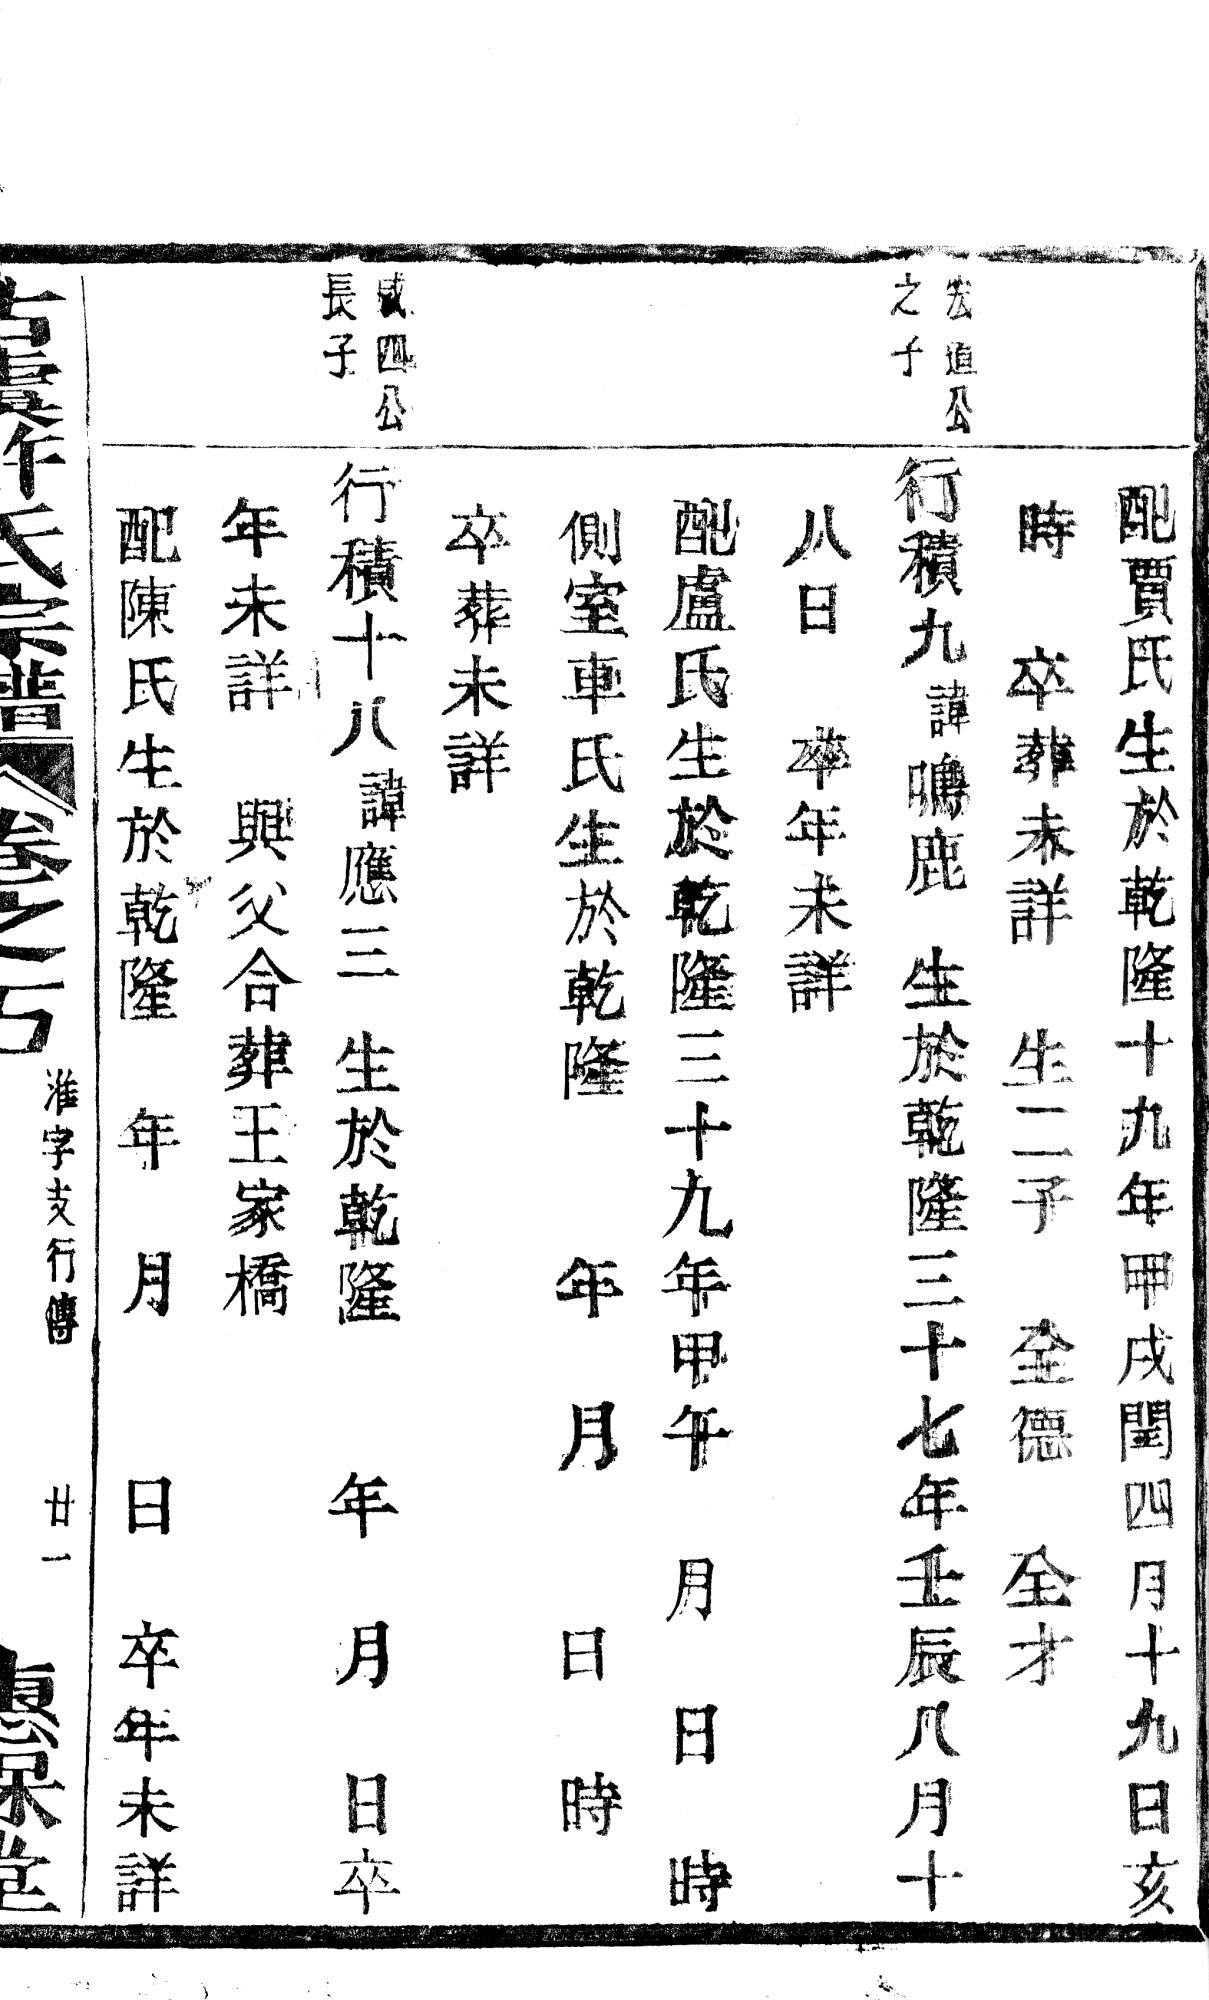 配賈氏生於乾隆十九年甲戌閏四月十九日亥
時　卒葬未詳　生二子　全德　全才
宏道公
之子
行積九諱鳴鹿　生於乾隆三十七年壬辰八月十
八日　卒年未詳
配盧氏生於乾隆三十九年甲午　月　日　時
側室車氏生於乾隆　　年　月　　日　時
卒葬未詳
咸四公
長子
行積十八諱應三　生於乾隆　　年　月　日卒
年未詳　與父合葬王家橋
配陳氏生於乾隆　年　月　　日　卒年未詳
許氏宗譜　卷之
淮字支行傳
廿一
堂